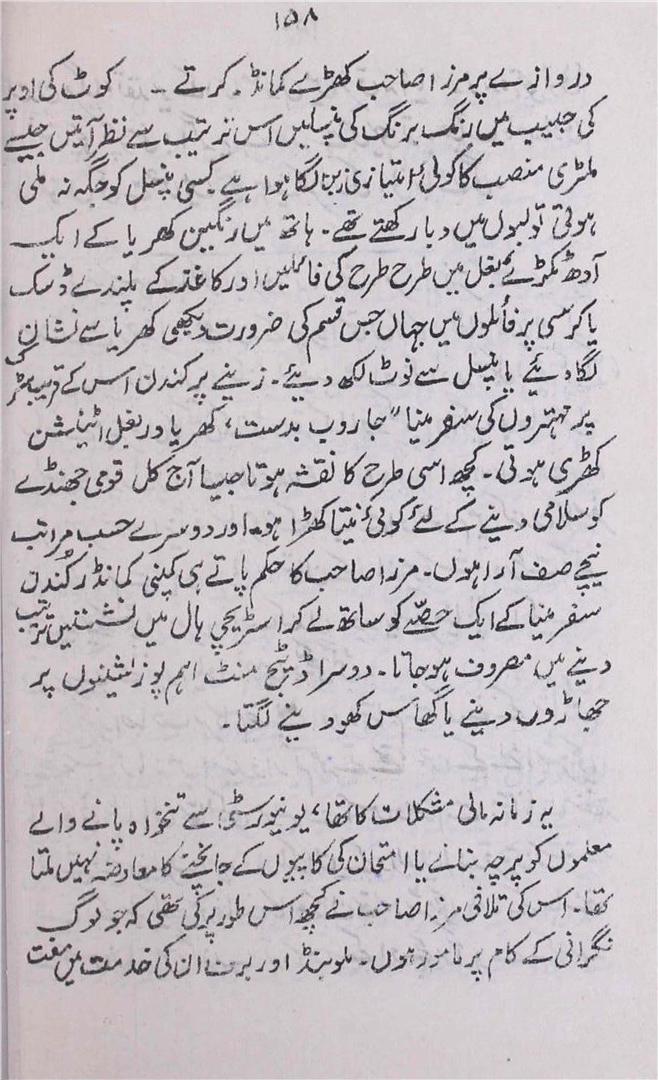 ۱۵۸
دروازے پر مرزا صاحب کھڑے کمانڈ کرتے ۔۔ کوٹ کی اوپر
کی جیب میں رنگ برنگ کی پنسلیں اس ترتیب سے نظر آتیں جیسے
ملٹری منصب کا کوئی امتیازی زینہ لگا ہوا ہے۔ کسی پنسل کو جگہ نہ ملی
ہوتی تو لبوں میں دبا رکھتے تھے۔ ہاتھ میں رنگین کھریا کے ایک
آدھ ٹکڑے بغل میں طرح طرح کی فائلیں اور کاغذ کے پلندے ڈسک
یا کرسی پر فائلوں میں جہاں جس قسم کی ضرورت دیکھی کھریا سے نشان
لگا دیئے یا پنسل سے نوٹ لکھ دیئے۔ زینے پر کندن اس کے قریب سڑک
پر مہتروں کی سفر مینا "جاروب بدست، کھرپا در بغل اٹینشن
کھڑی ہوتی۔ کچھ اسی طرح کا نقشہ ہوتا جیسا آج کل قومی جھنڈے
کو سلامی دینے کے لئے کوئی نیتا کھڑا ہو۔ اور دوسرے حسب مراتب
نیچے صف آرا ہوں۔ مرزا صاحب کا حکم پاتے ہی کمپنی کمانڈر کُندن
سفر مینا کے ایک حصّے کو ساتھ لے کر اسٹریچی ہال میں نشستیں ترتیب
دینے میں مصروف ہو جاتا۔ دوسرا ڈیٹیچ منٹ اہم پوزیشنوں پر
جھاڑوں دینے یا گھاس کھودنے لگتا۔
یہ زمانہ مالی مشکلات کا تھا، یونیورسٹی سے تنخواہ پانے والے
معلموں کو پرچہ بنانے یا امتحان کی کاپیوں کے جانچنے کا معاوضہ نہیں ملتا
تھا۔ اس کی تلافی مرزا صاحب نے کچھ اس طور پر کی تھی کہ جو لوگ
نگرانی کے کام پر مامور ہوں۔ ملونیڈ اور برف ان کی خدمت میں مفت